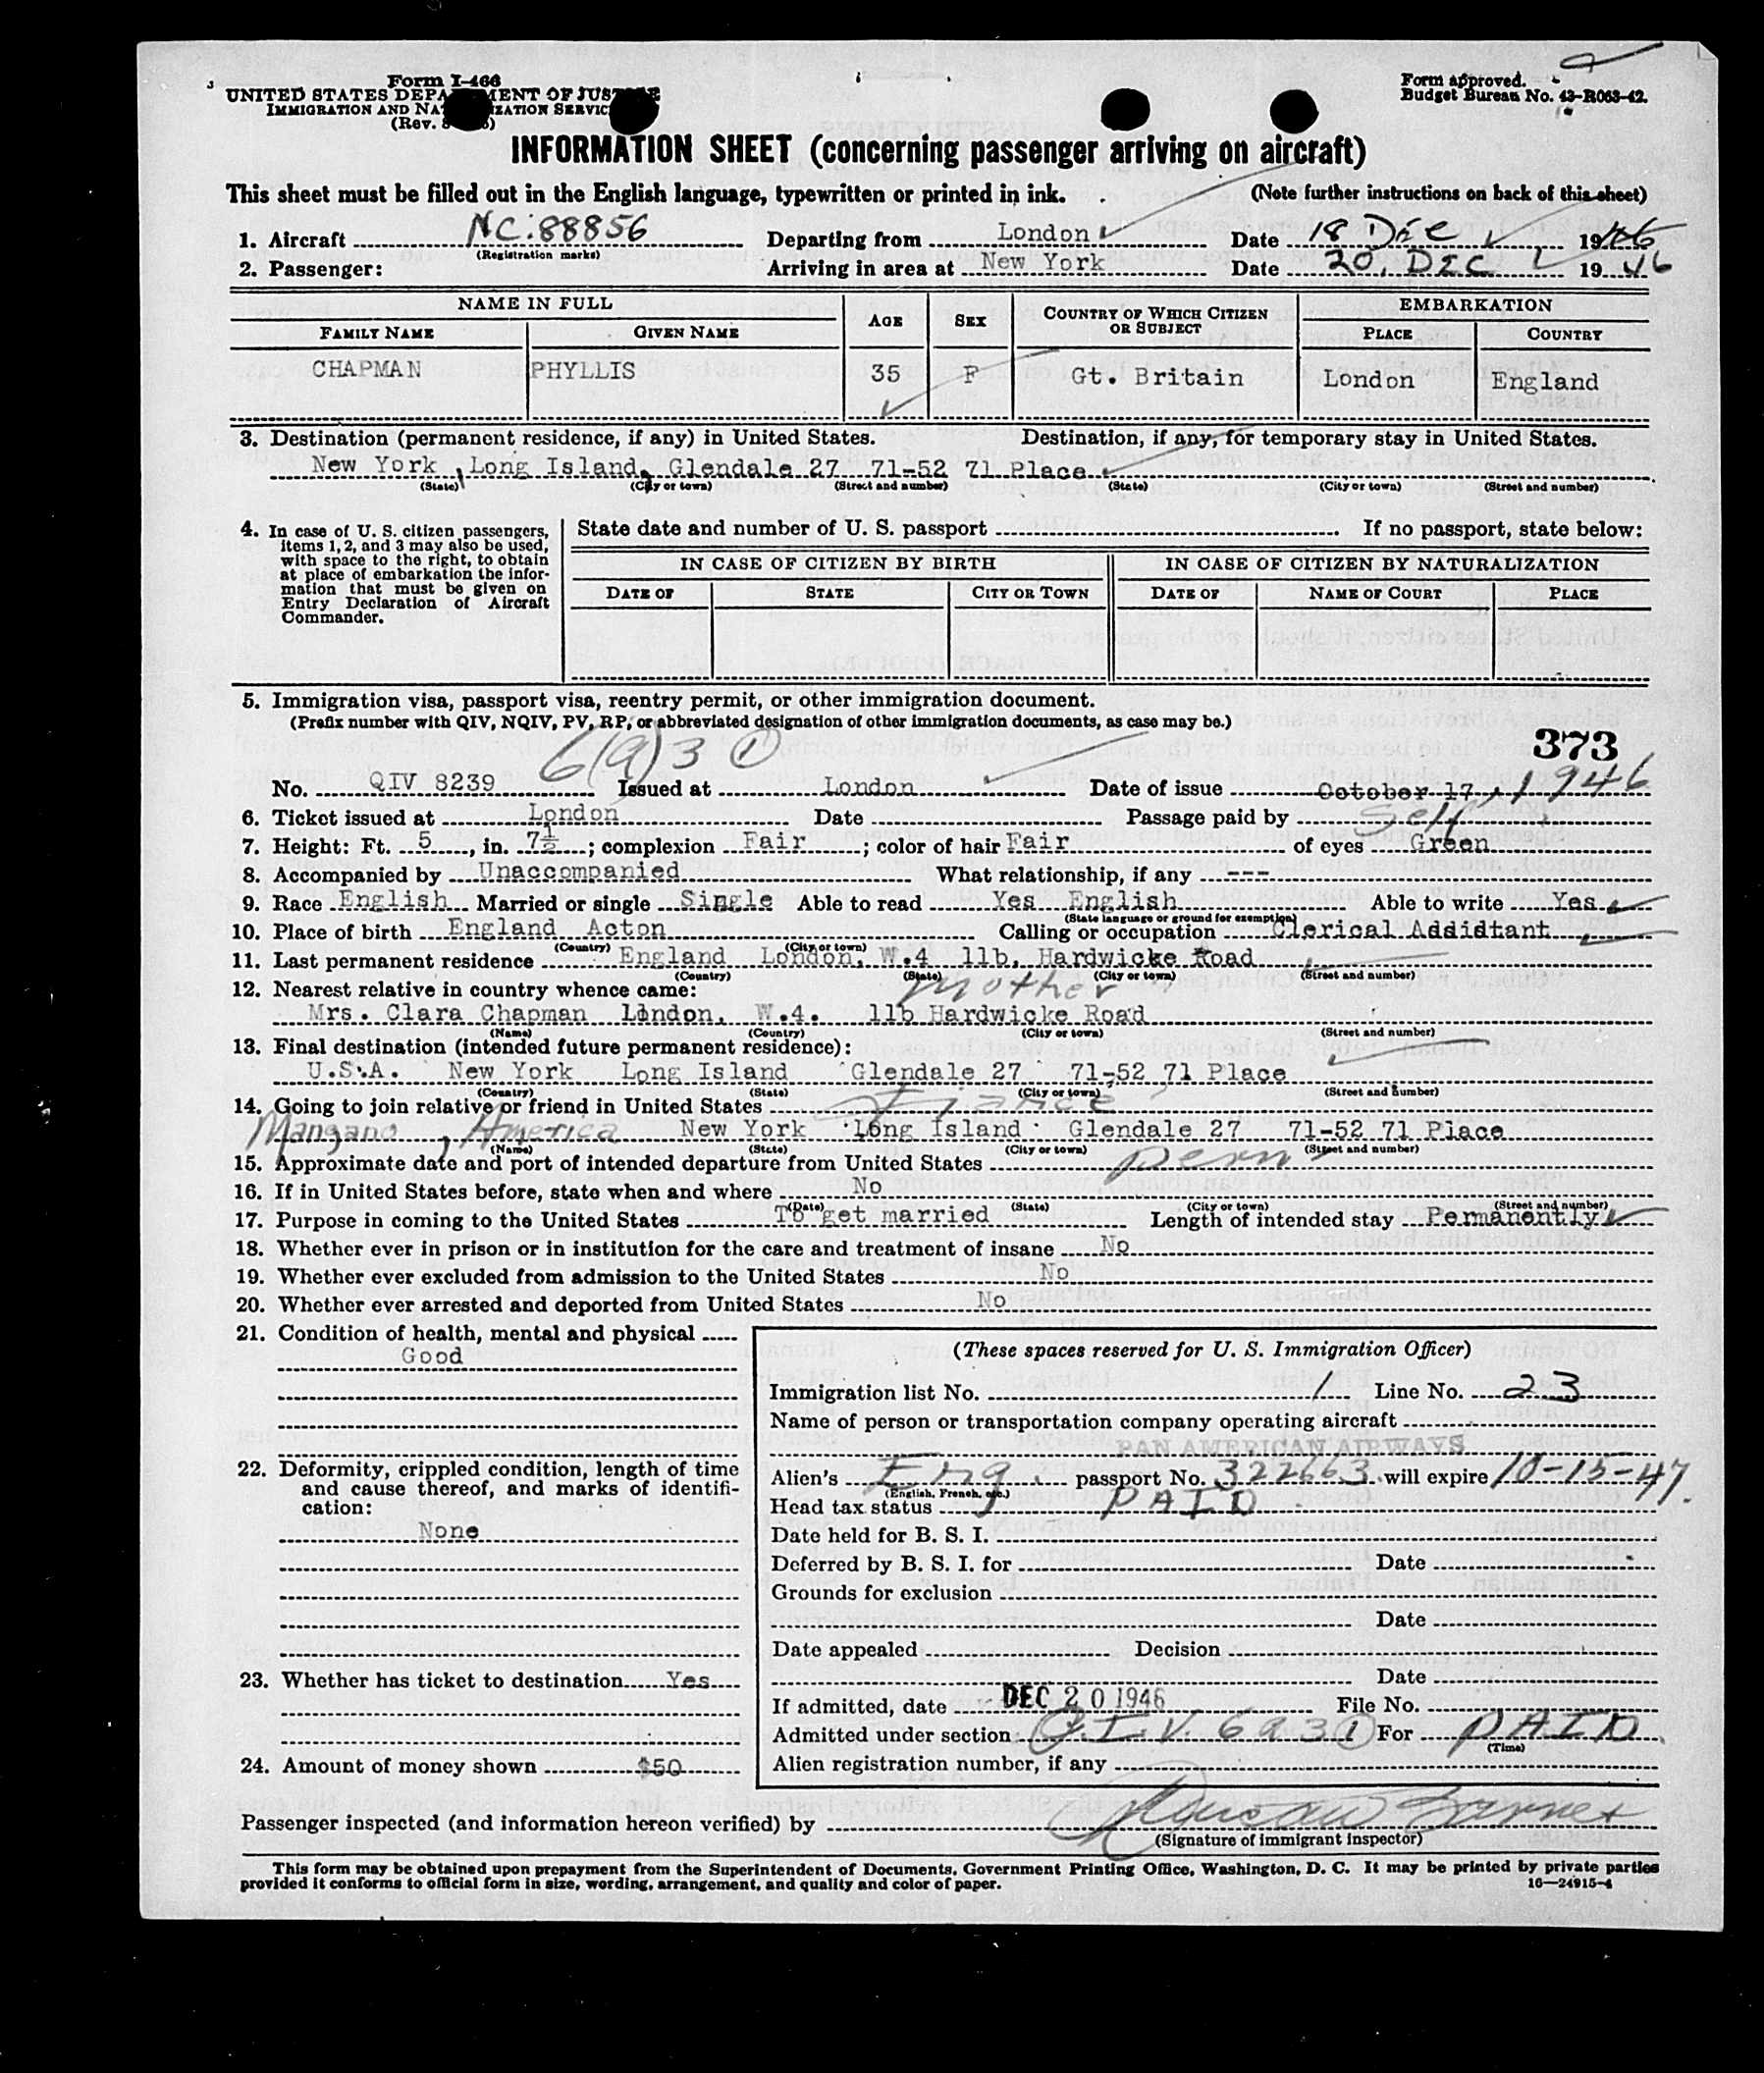 Form I-466
UNITED STATES DEPARTMENT OF JUSTICE
IMMIGRATION AND NATURALIZATION SERVICE
(Rev.
Form approved.
Budget Bureau No. 43-R063-42.
INFORMATION SHEET (concerning passenger arriving on aircraft)
This sheet must be filled out in the English language, typewritten or printed in ink. (Note further instructions on back of this sheet)
1. Aircraft NC:88856 Departing from London Date 18 Dec 1946
(Registration marks)
2. Passenger: Arriving in area at New York Date 20, DEC 1946
NAME IN FULL AGE SEX COUNTRY OF WHICH CITIZEN OR SUBJECT EMBARKATION
FAMILY NAME GIVEN NAME PLACE COUNTRY
CHAPMAN PHYLLIS 35 F Gt. Britain London England
3. Destination (permanent residence, if any) in United States. Destination, if any, for temporary stay in United States.
New York, Long Island, Glendale 27 71-52 71 Place
(State) (City or town) (Street and number) (State) (City or town) (Street and number)
4. In case of U. S. citizen passengers, items 1, 2, and 3 may also be used, with space to the right, to obtain at place of embarkation the information that must be given on Entry Declaration of Aircraft Commander.
State date and number of U. S. passport If no passport, state below:
IN CASE OF CITIZEN BY BIRTH IN CASE OF CITIZEN BY NATURALIZATION
DATE OF STATE CITY OR TOWN DATE OF NAME OF COURT PLACE
5. Immigration visa, passport visa, reentry permit, or other immigration document.
(Prefix number with QIV, NQIV, PV, RP, or abbreviated designation of other immigration documents, as case may be.)
6(9)3 1 373
No. QIV 8239 Issued at London Date of issue October 17, 1946
6. Ticket issued at London Date Passage paid by Self
7. Height: Ft. 5, in. 7½; complexion Fair; color of hair Fair of eyes Green
8. Accompanied by Unaccompanied What relationship, if any ---
9. Race English Married or single Single Able to read Yes English Able to write Yes
(State language or ground for exemption)
10. Place of birth England Acton Calling or occupation Clerical Addidtant
(Country) (City or town)
11. Last permanent residence England London, W.4 11b, Hardwicke Road
(Country) (State) (City or town) (Street and number)
12. Nearest relative in country whence came: Mother
Mrs. Clara Chapman London, W.4. 11b Hardwicke Road
(Name) (Country) (City or town) (Street and number)
13. Final destination (intended future permanent residence):
U.S.A. New York Long Island Glendale 27 71-52 71 Place
(Country) (State) (City or town) (Street and number)
14. Going to join relative or friend in United States Fiance
Mangano, America New York Long Island Glendale 27 71-52 71 Place
(Name) (State) (City or town) (Street and number)
15. Approximate date and port of intended departure from United States Perm
16. If in United States before, state when and where No
(Date) (State) (City or town) (Street and number)
17. Purpose in coming to the United States To get married Length of intended stay Permanently
18. Whether ever in prison or in institution for the care and treatment of insane No
19. Whether ever excluded from admission to the United States No
20. Whether ever arrested and deported from United States No
21. Condition of health, mental and physical
Good
22. Deformity, crippled condition, length of time and cause thereof, and marks of identification:
None
23. Whether has ticket to destination Yes
24. Amount of money shown $50
(These spaces reserved for U. S. Immigration Officer)
Immigration list No. 1 Line No. 23
Name of person or transportation company operating aircraft
PAN AMERICAN AIRWAYS
Alien's Eng passport No. 322663 will expire 10-15-47.
(English, French, etc.)
Head tax status PAID
Date held for B. S. I.
Deferred by B. S. I. for Date
Grounds for exclusion
Date
Date appealed Decision
Date
If admitted, date DEC 20 1946 File No.
Admitted under section Q.I.V. 6 a 3 1 For PAID
(Time)
Alien registration number, if any
Passenger inspected (and information hereon verified) by
(Signature of immigrant inspector)
This form may be obtained upon prepayment from the Superintendent of Documents, Government Printing Office, Washington, D. C. It may be printed by private parties
provided it conforms to official form in size, wording, arrangement, and quality and color of paper. 16—24915-4